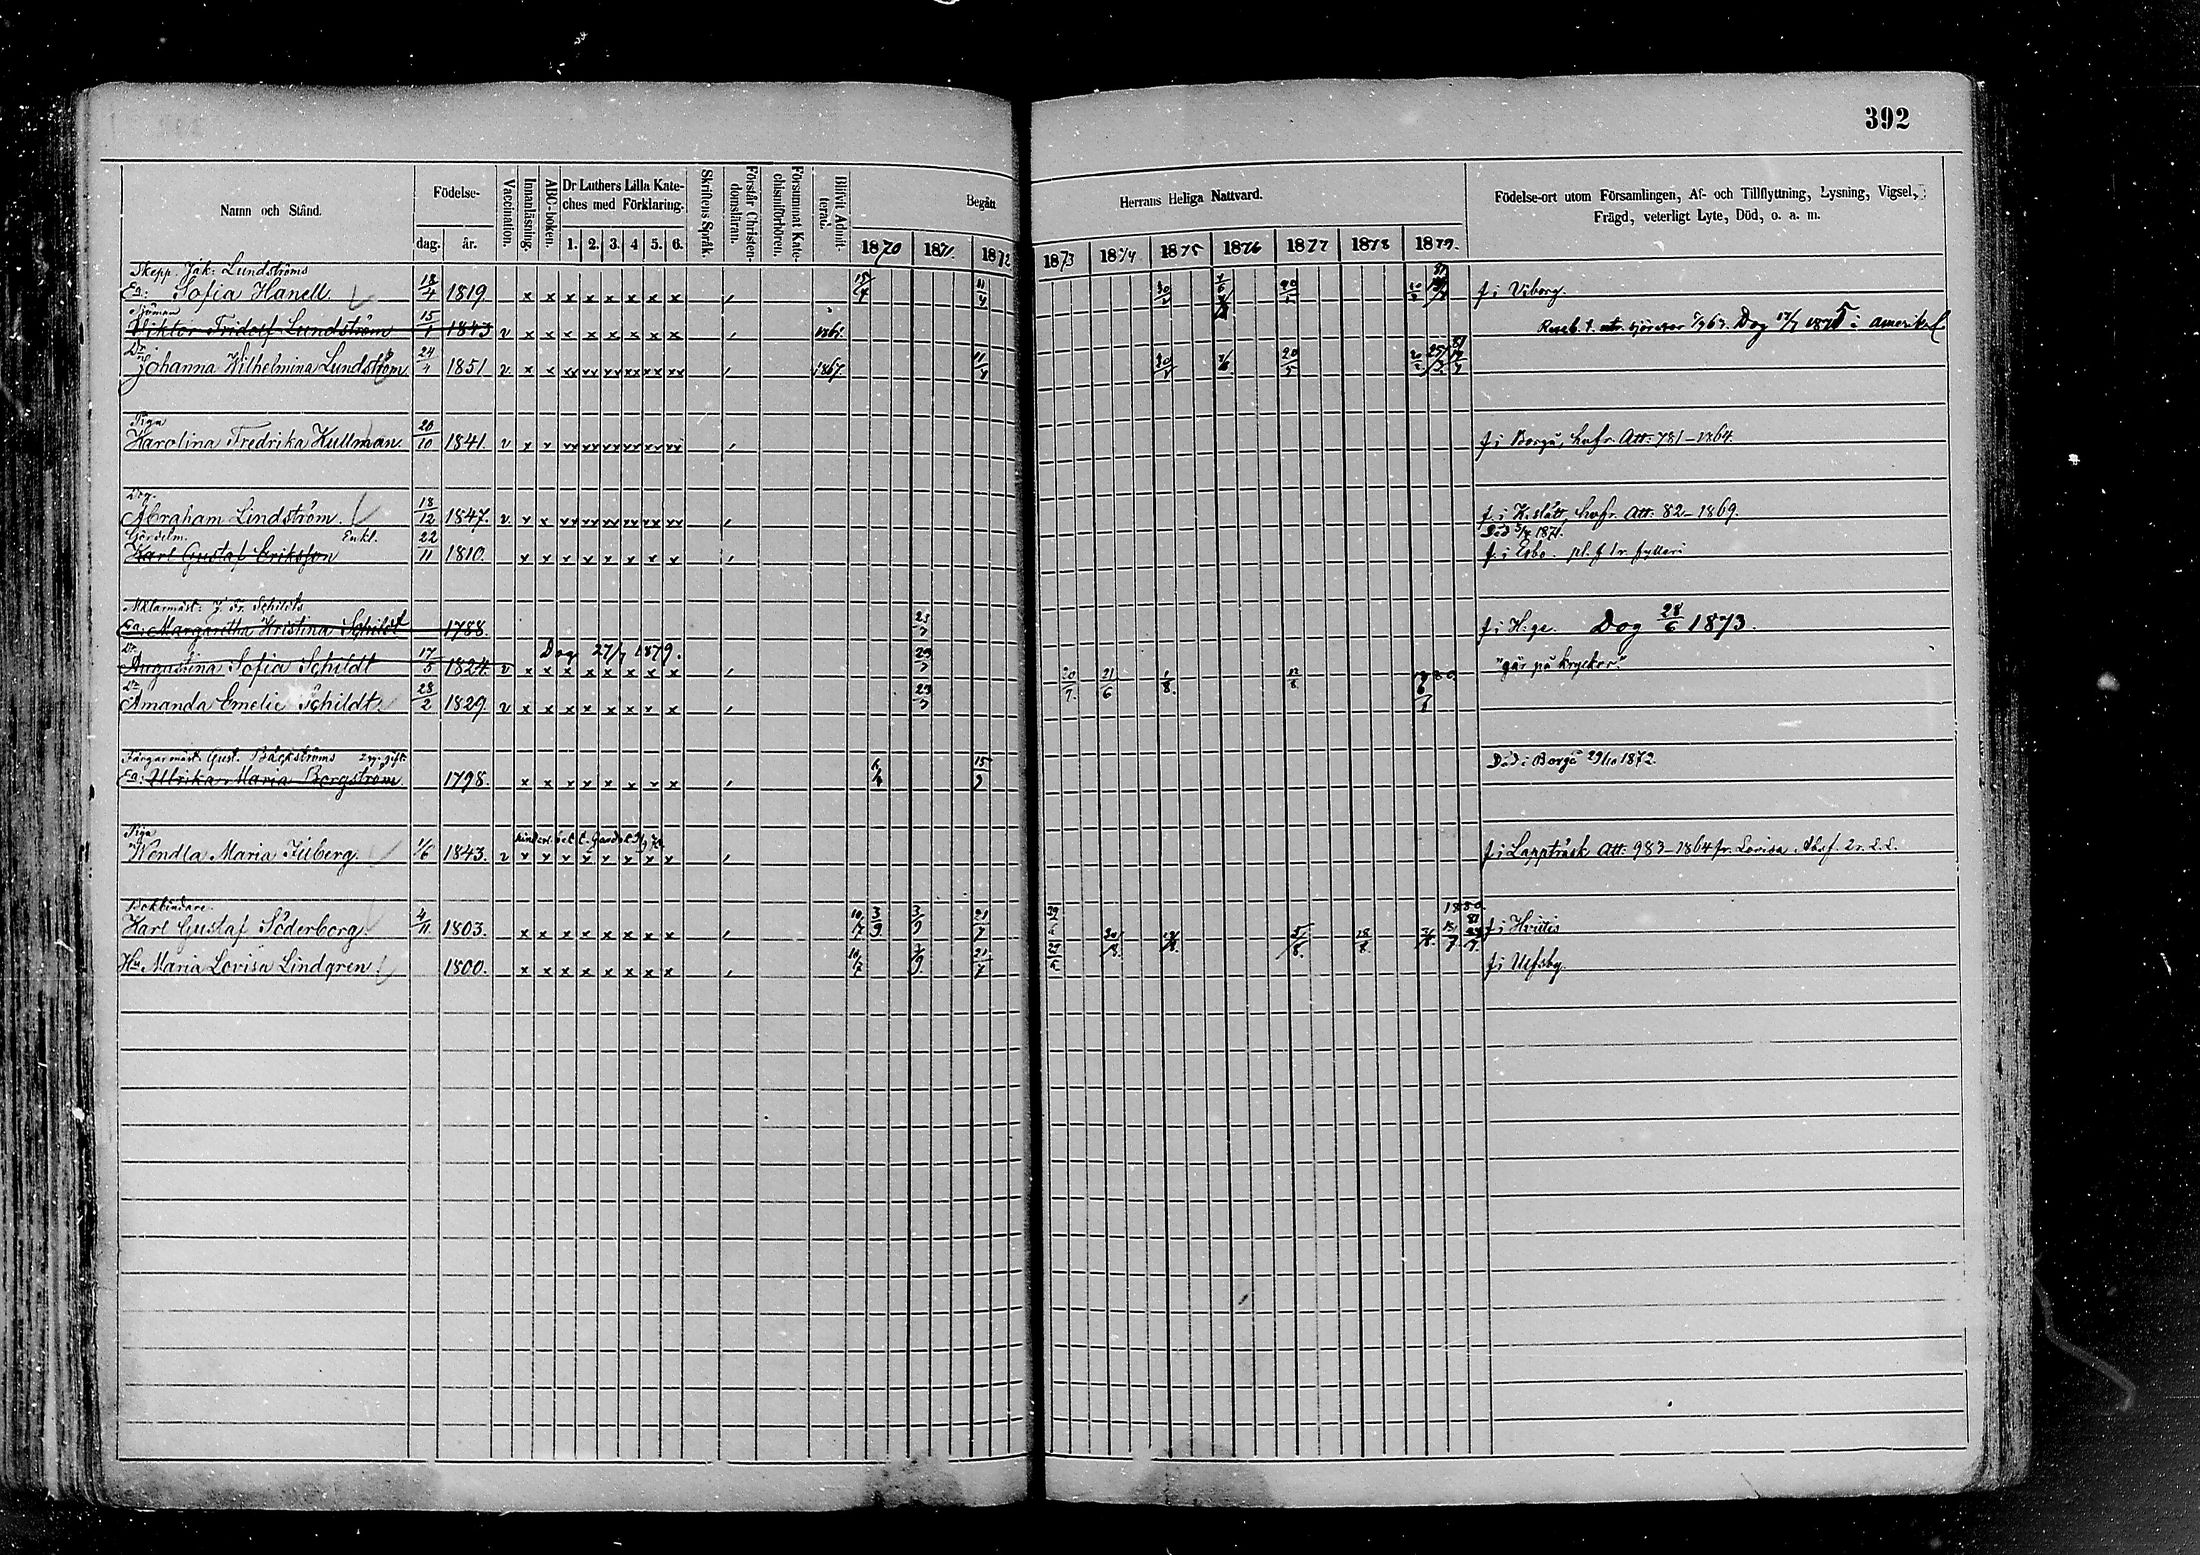 392
Namn och Stånd.
Födelse-
dag. år.
Vaccination.
Innanläsning.
ABC-boken.
Dr Luthers Lilla Kate-
ches med Förklaring.
1. 2. 3. 4. 5. 6.
Skriftens Språk.
Förstår Christen-
domsläran.
Försummat Kate-
chismiförhören.
Blifvit Admit-
terad.
Begått
1870 1871. 1872
Herrans Heliga Nattvard.
1873 1874 1875 1876 1877 1878 1879.
Födelse-ort utom Församlingen, Af- och Tillflyttning, Lysning, Vigsel,
Frägd, veterligt Lyte, Död, o. a. m.
Skepp. Jak: Lundströms
Ea: Sofia Hanell 18/4 1819 x x x x x x x x 15/4 11/4 20/5 f i Viborg.
Sjöman
Viktor Fridolf Lundström 15/1 1843 v x x x x x x x x Dog 17/7 1875 i amerika
Dr
Johanna Wilhelmina Lundström 24/4 1851 v x x xx xx xx xx xx xx 1867. 11/4 20/5
Piga
Karolina Fredrika Kullman. 20/10 1841. v x x xx xx xx xx xx xx f i Borgå, hofr. Att: 781-1864.
Drg.
Abraham Lindström. 18/12 1847. v x x xx xx xx xx xx xx f i K.slätt, hofr. Att: 82-1869.
Enkl. Död 1871.
Karl Gustaf Eriksson 22/11 1810. x x x x x x x x f. i Esbo. pl. f 1r. fylleri
J. Fr. Schildts
Ea: Margaretha Kristina Schildt 1788. 23/7 f i H:ge. Dog 28/6 1873.
Dr Dog 27/7 1879.
Augustina Sofia Schildt 17/5 1824. v x x x x x x x x 23/7 "går på kryckor."
Dr
Amanda Emelie Schildt. 28/2 1829 v x x x x x x x x 23/7 20/7. 21/6 1/8. 12/8
Färgarmäst. Gust. Bäckströms 2 gg. gift.
Ea: Ulrika Maria Bergström. 1798. x x x x x x x x 15/9 Död i Borgå 29/10 1872.
Piga
Wendla Maria Filberg. 1/6 1843. v x x x x x x x x f i Lappträsk Att: 983-1864 fr. Lovisa.
Bokbindare.
Karl Gustaf Söderborg. 4/11 1803. x x x x x x x x 10/7 3/9 3/9 21/7 1880 81 f i Hvittis
Hu Maria Lovisa Lindgren. 1800. x x x x x x x x 10/7 3/9 21/7 f i Ulfsby.